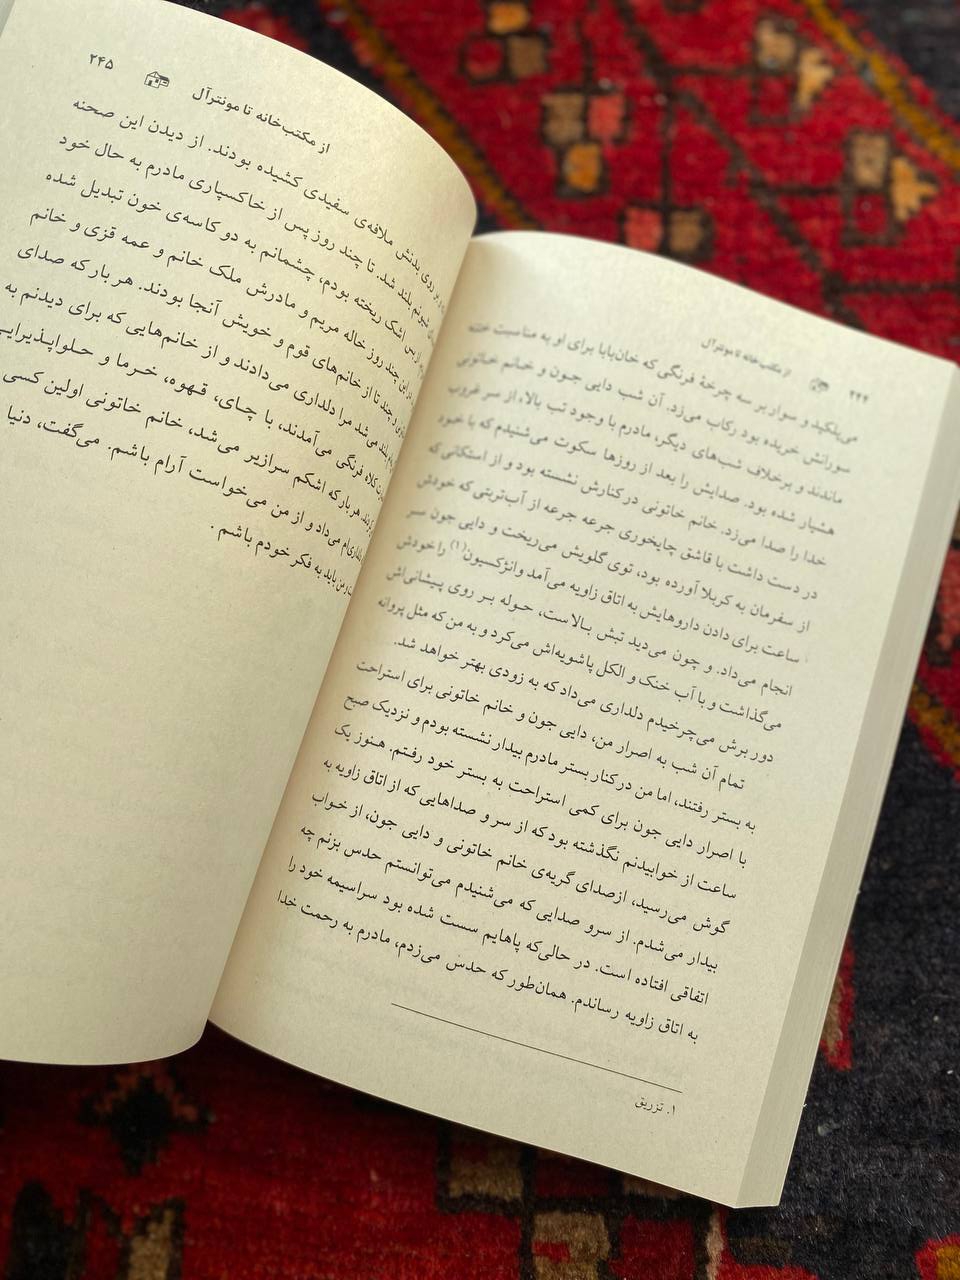 ۲۴۴
از مکتب‌خانه تا مونترآل
می‌پلکید و سوار بر سه چرخهٔ فرنگی که خان‌بابا برای او به مناسبت ختنه
سورانش خریده بود رکاب می‌زد. آن شب دایی جـون و خـانم خـاتونی
ماندند و برخلاف شب‌های دیگر، مادرم با وجود تب بالا، از سر غروب
هشیار شده بود. صدایش را بعد از روزها سکوت می‌شنیدم که با خود
خدا را صدا می‌زد. خانم خاتونی در کنارش نشسته بود و از استکانی که
در دست داشت با قاشق چایخوری جرعه جرعه از آب‌تربتی که خودش
از سفرمان به کربلا آورده بود، توی گلویش می‌ریخت و دایی جون سر
ساعت برای دادن داروهایش به اتاق زاویه می‌آمد وانژکسیون(۱) را خودش
انجام می‌داد. و چون می‌دید تبش بـالاست، حـوله بـر روی پـیشانی‌اش
می‌گذاشت و با آب خنک و الکل پاشویه‌اش می‌کرد و به من که مثل پروانه
دور برش می‌چرخیدم دلداری می‌داد که به زودی بهتر خواهد شد.
تمام آن شب به اصرار من، دایی جون و خانم خاتونی برای استراحت
به بستر رفتند، اما من در کنار بستر مادرم بیدار نشسته بودم و نزدیک صبح
با اصرار دایی جون برای کمی استراحت به بستر خود رفـتم. هـنوز یک
ساعت از خوابیدنم نگذشته بود که از سر و صداهایی که از اتاق زاویه به
گوش می‌رسید، ازصدای گریه‌ی خانم خاتونی و دایی جون، از خـواب
بیدار می‌شدم. از سرو صدایی که می‌شنیدم می‌توانستم حدس بزنم چه
اتفاقی افتاده است. در حالی‌که پاهایم سست شده بود سراسیمه خود را
به اتاق زاویه رساندم. همان‌طور که حدس می‌زدم، مادرم به رحمت خدا
۱. تزریق
از مکتب‌خانه تا مونترآل
۲۴۵
روی بدنش ملافه‌ی سفیدی کشیده بودند. از دیدن این صحنه
شیونم بلند شد. تا چند روز پس از خاکسپاری مادرم به حال خود
از بس اشک ریخته بودم، چشمانم به دو کاسه‌ی خون تبدیل شده
در این چند روز خاله مریم و مادرش ملک خانم و عمه قزی و خانم
چند تا از خانم‌های قوم و خویش آنجا بودند. هر بار که صدای
بلند می‌شد مرا دلداری می‌دادند و از خانم‌هایی که برای دیدنم به
کلاه فرنگی می‌آمدند، با چـای، قـهوه، خـرما و حـلواپـذیرایـی
هر بار که اشکم سرازیر می‌شد، خانم خاتونی اولین کسی
می‌داد و از من می‌خواست آرام باشم. می‌گفت، دنیا
من باید به فکر خودم باشم .